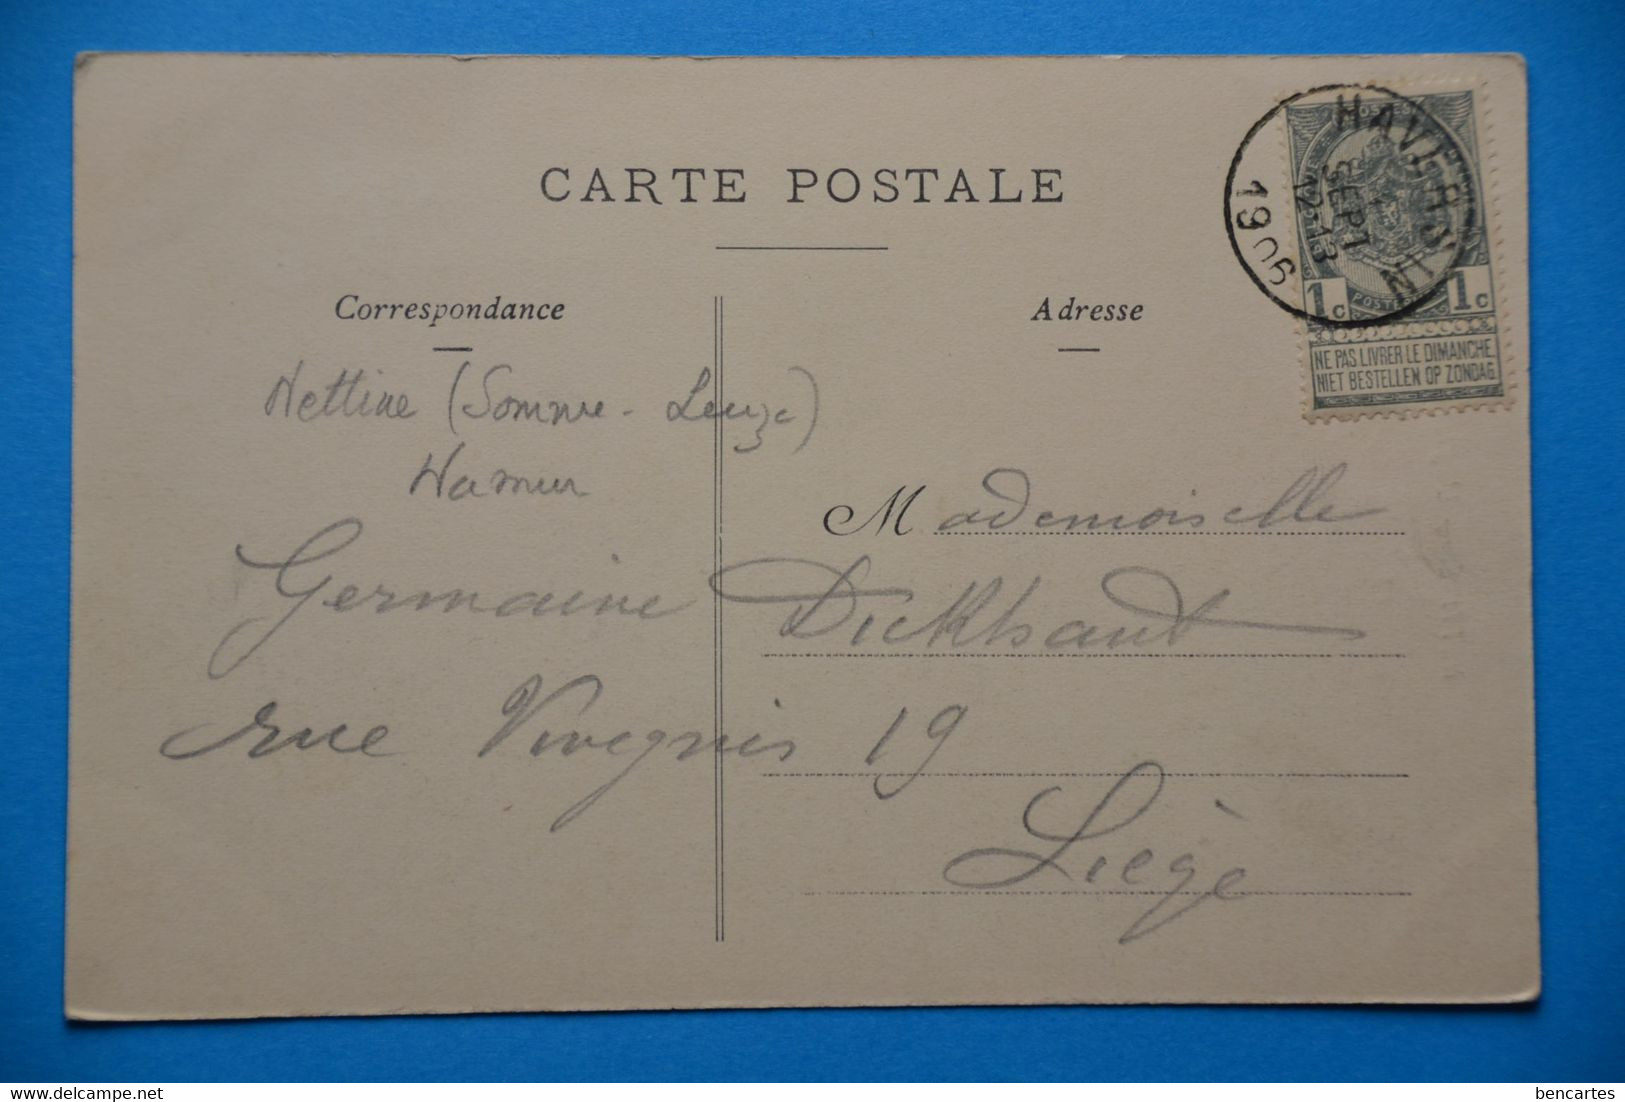 CARTE POSTALE
HAVERSIN
1 SEPT
12-13
1909
1c POSTE 1c
NE PAS LIVRER LE DIMANCHE.
NIET BESTELLEN OP ZONDAG.
Correspondance
Adresse
Nettine (Somme-Leuze)
Namur
Mademoiselle
Germaine Dickhaut
rue Vivegnis 19
Liège
bencartes